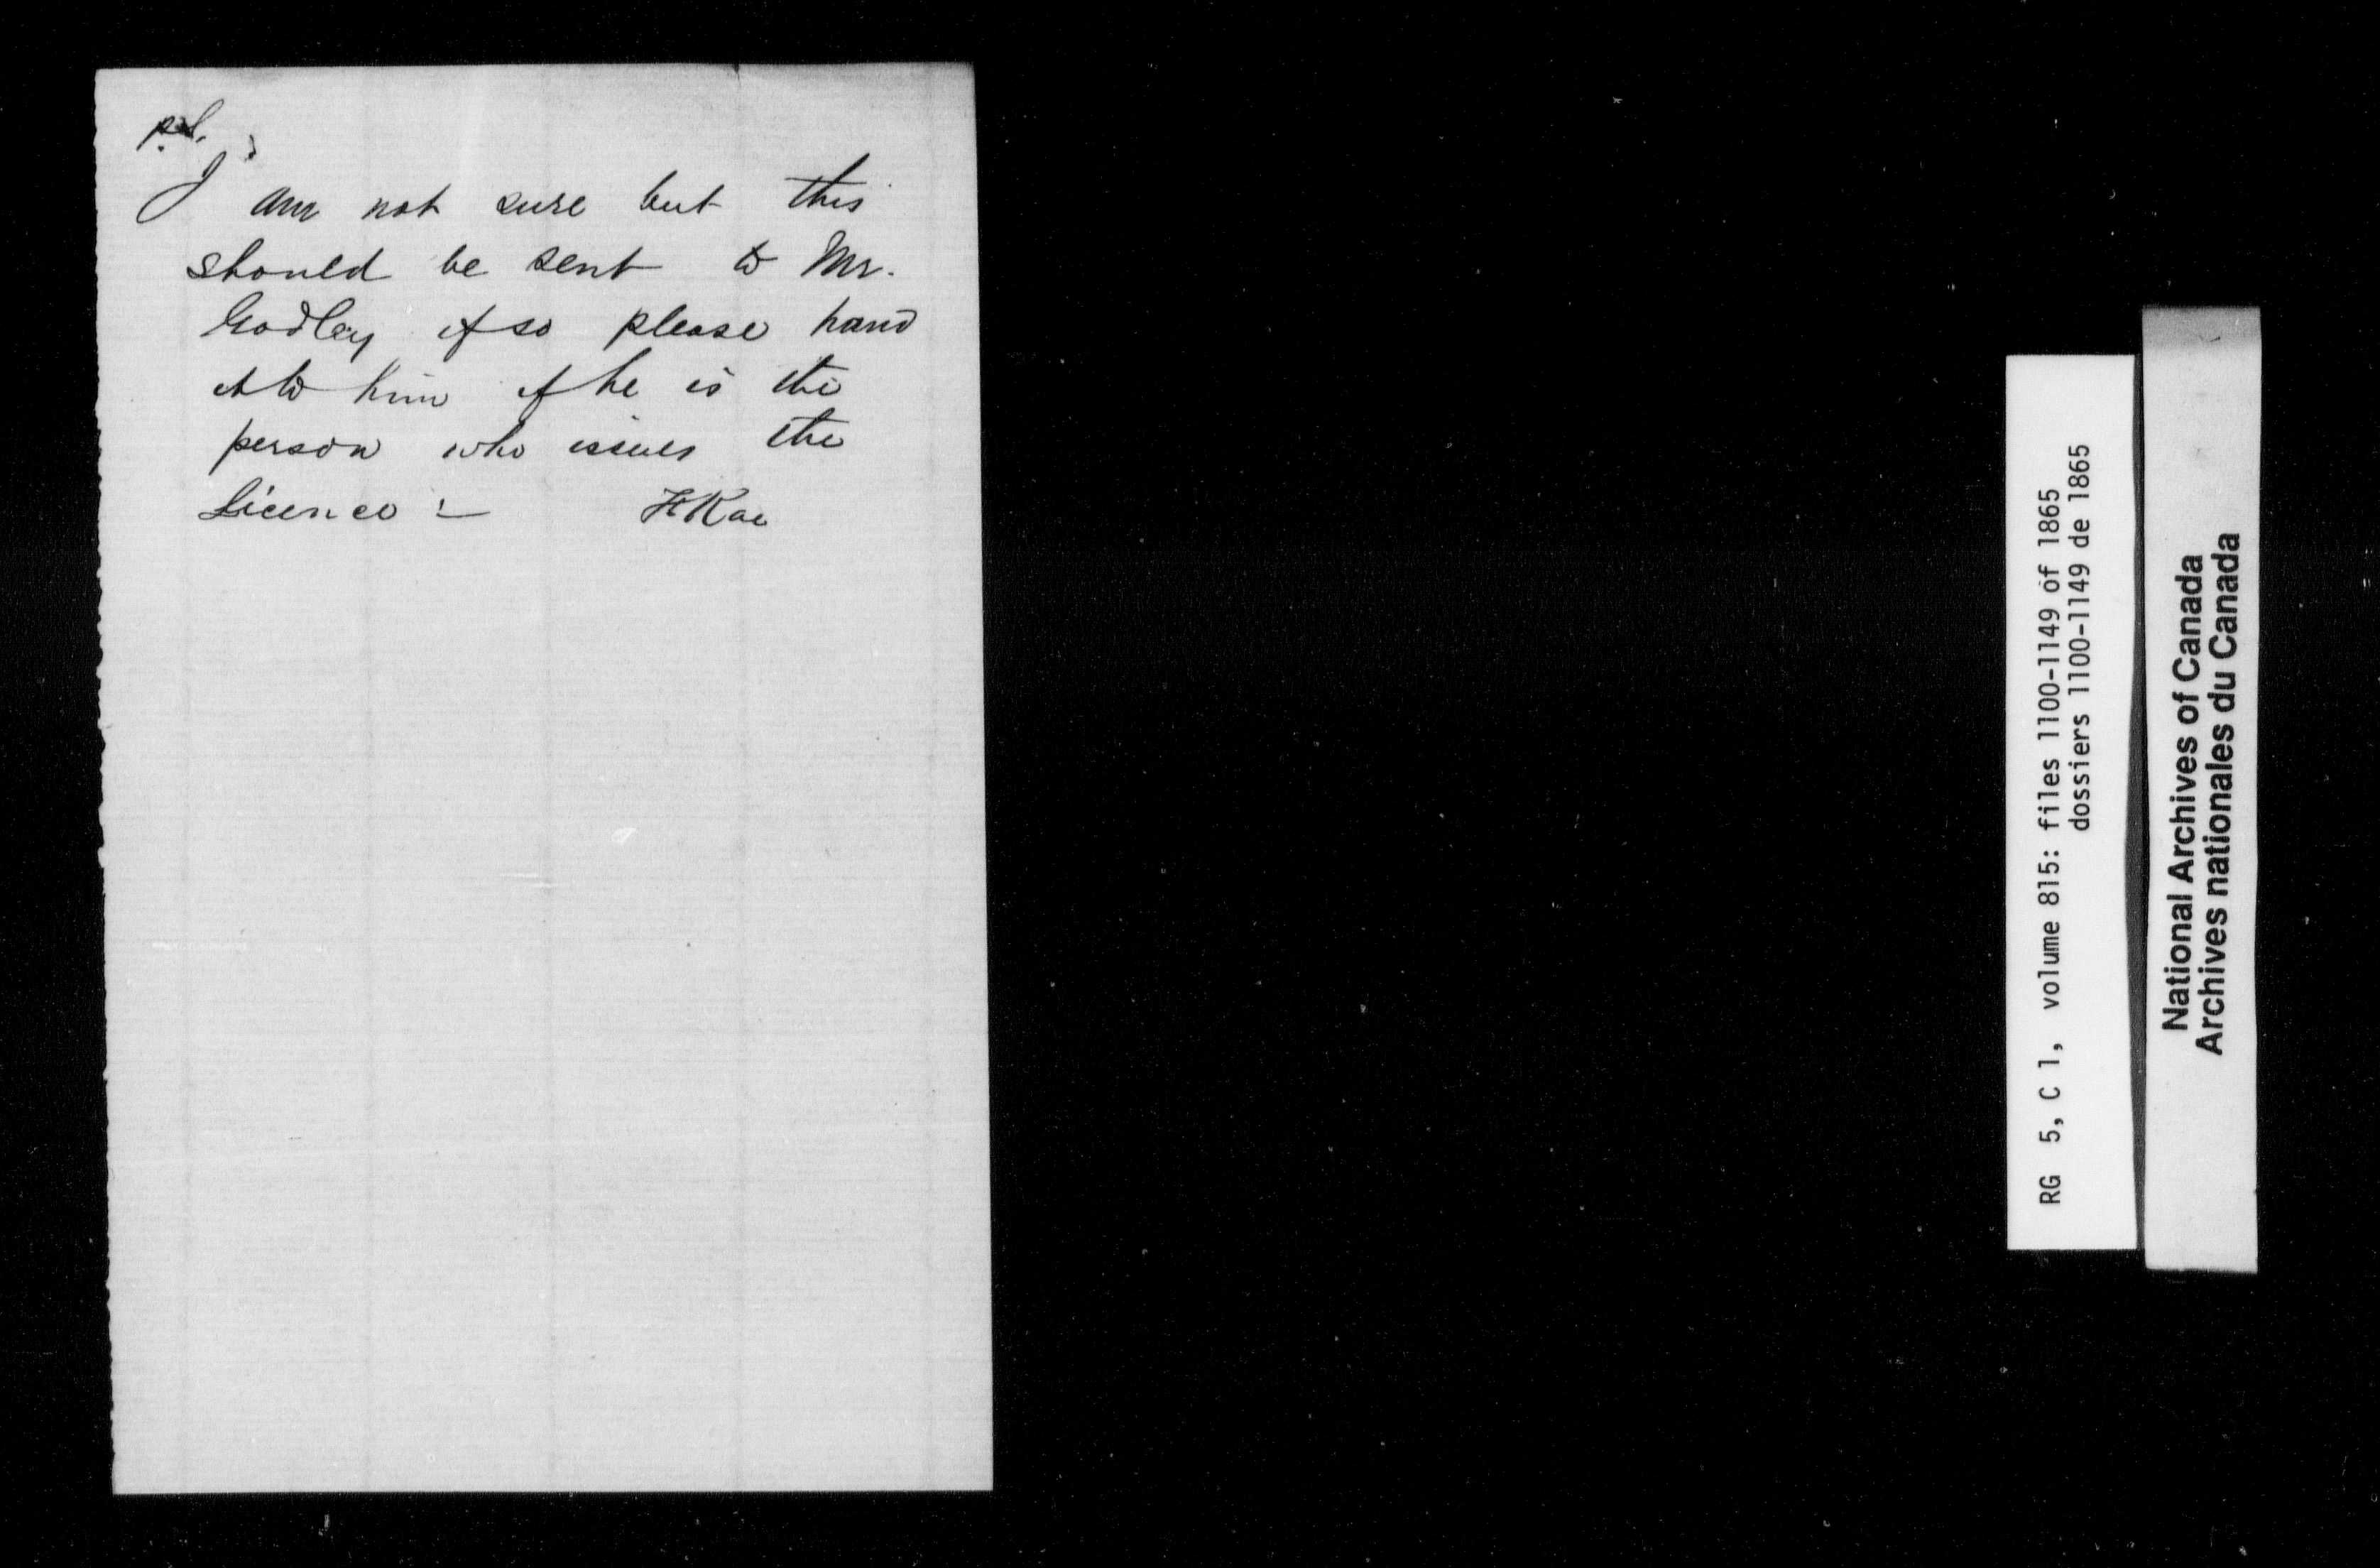 I am not sure but this
should be sent to Mr.
Godley if so please hand
it to him if he is the
person who issues the
Licence :- 
RG 5, C 1, volume 815: files 1100-1149 of 1865
dossiers 1100-1149 de 1865
National Archives of Canada
Archives nationales du Canada